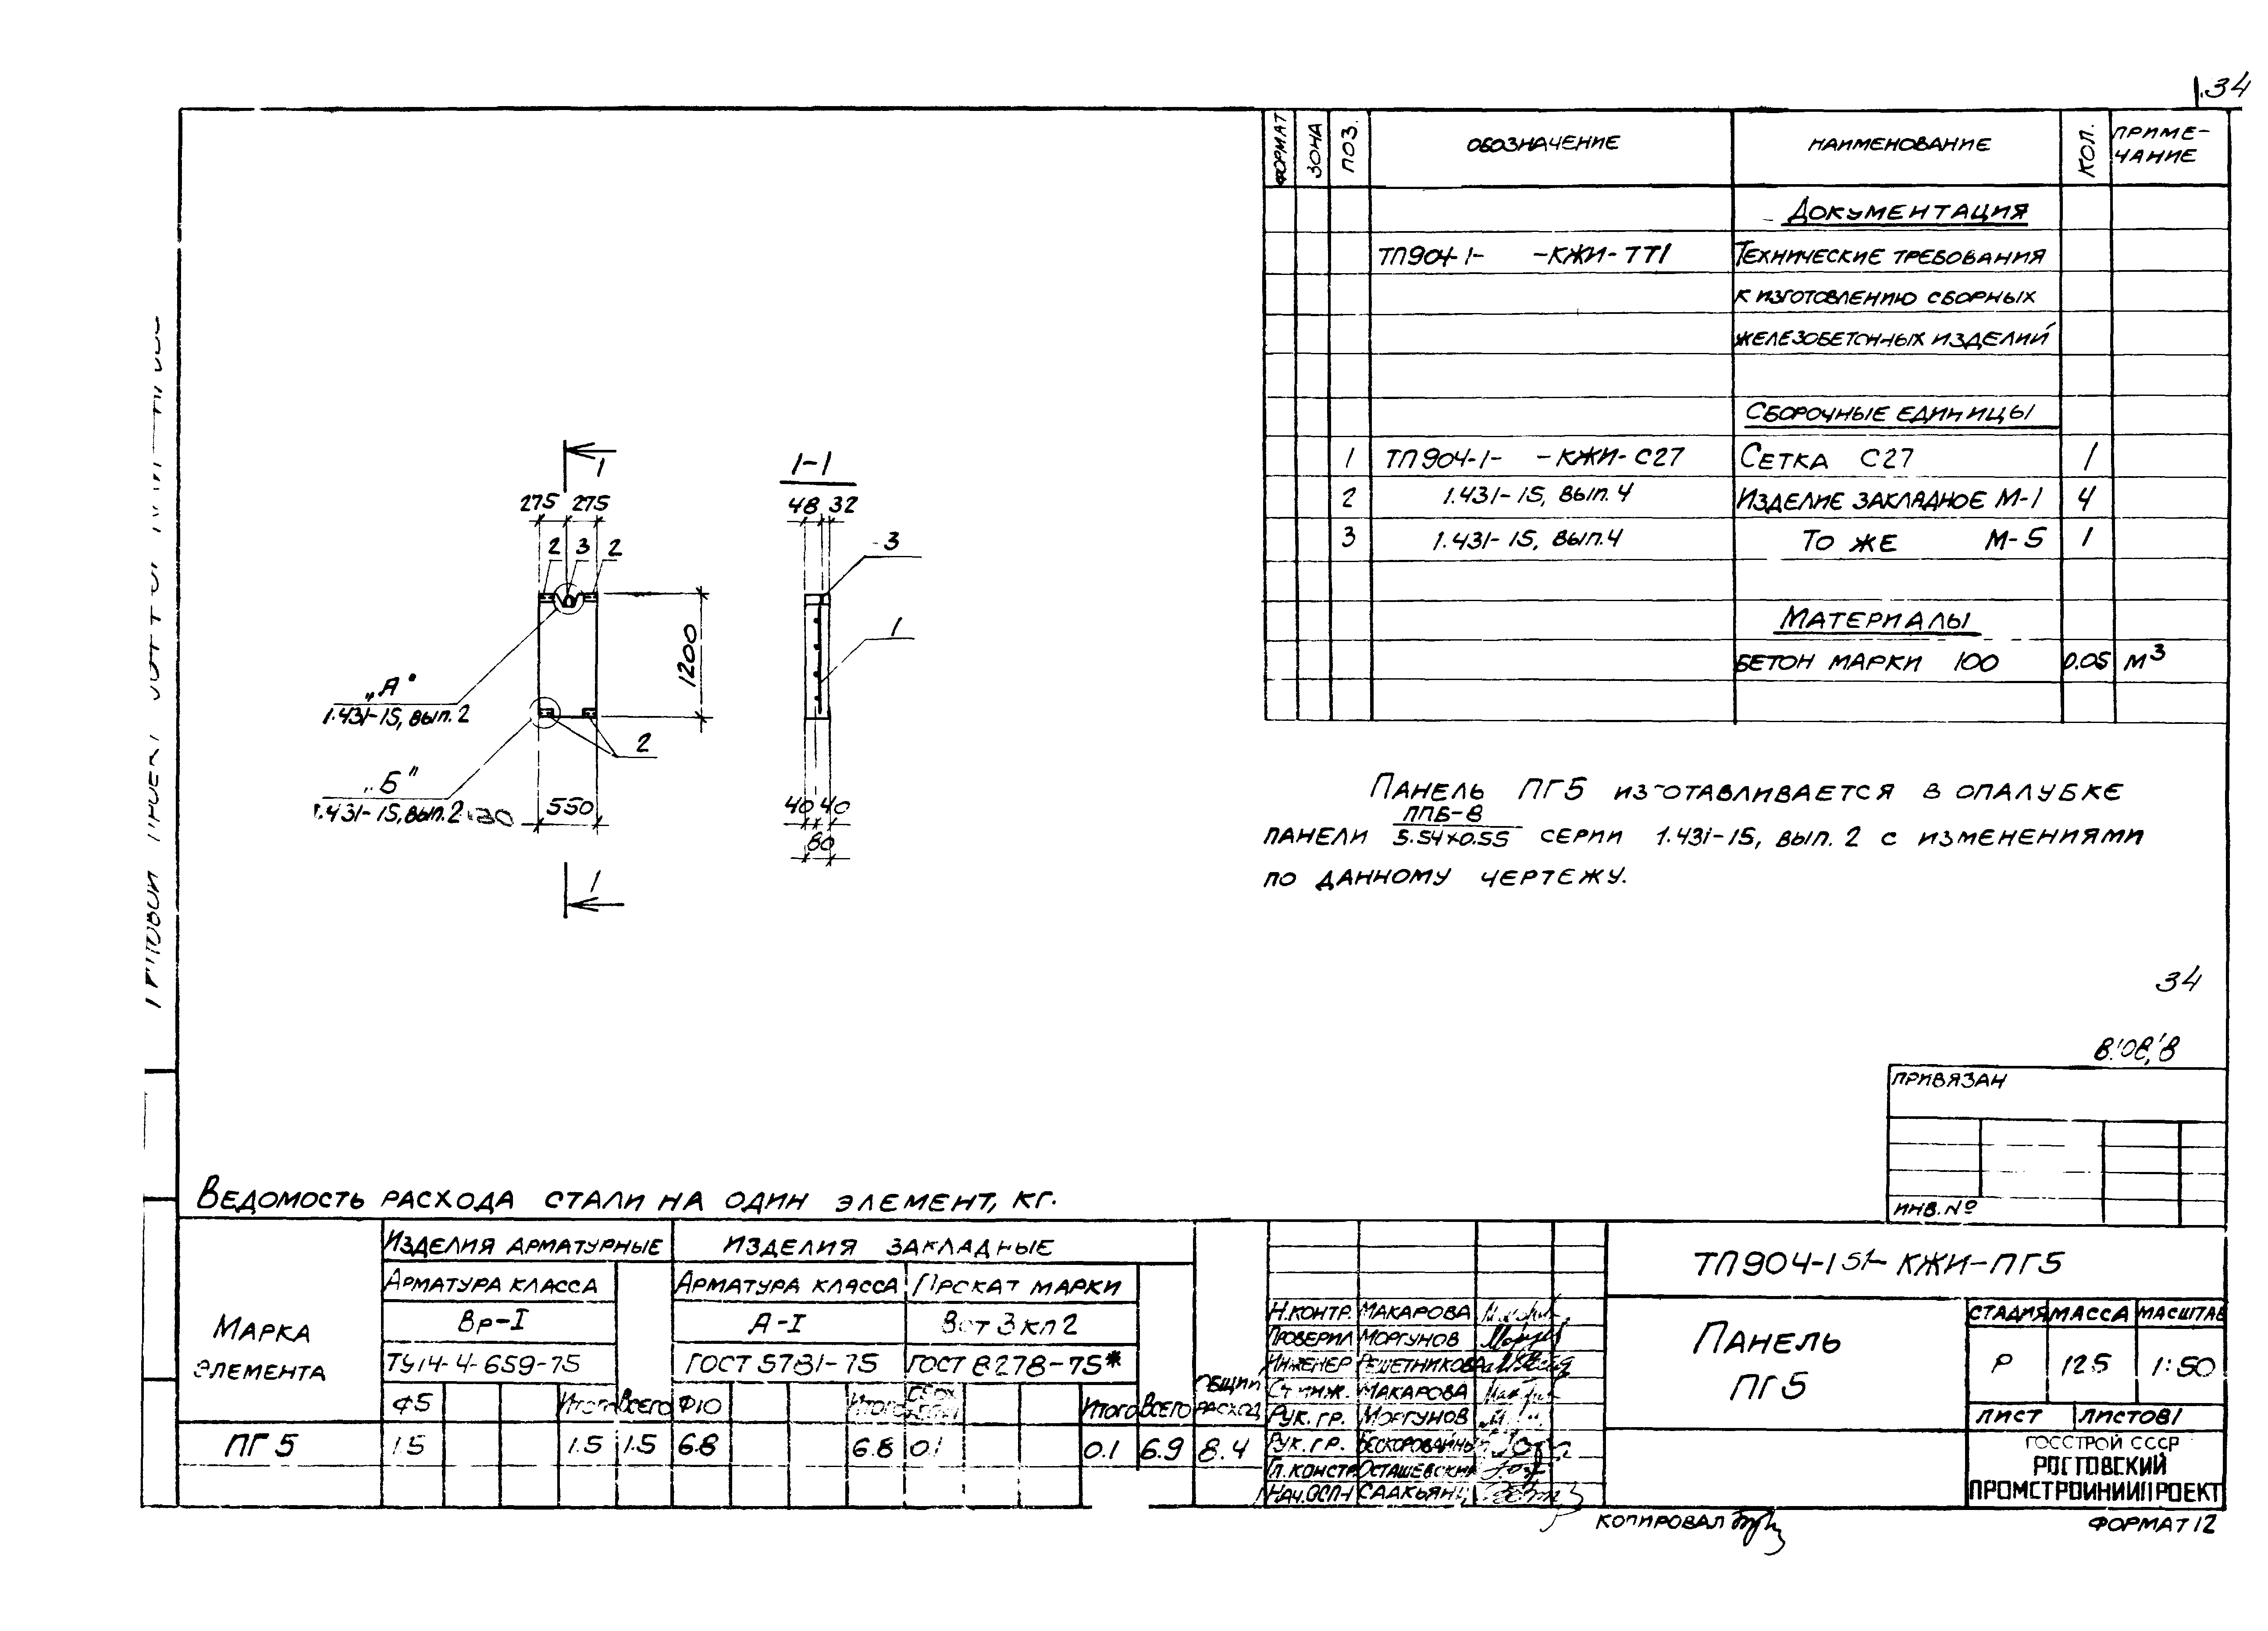 34
ФОРМАТ ЗОНА ПОЗ. ОБОЗНАЧЕНИЕ НАИМЕНОВАНИЕ КОЛ. ПРИМЕ-
ЧАНИЕ
ДОКУМЕНТАЦИЯ
ТП904-1- -КЖИ-ТТ1 ТЕХНИЧЕСКИЕ ТРЕБОВАНИЯ
К ИЗГОТОВЛЕНИЮ СБОРНЫХ
ЖЕЛЕЗОБЕТОННЫХ ИЗДЕЛИЙ
СБОРОЧНЫЕ ЕДИНИЦЫ
1 ТП904-1- -КЖИ-С27 СЕТКА С27 1
2 1.431-15, ВЫП. 4 ИЗДЕЛИЕ ЗАКЛАДНОЕ М-1 4
3 1.431-15, ВЫП.4 ТО ЖЕ М-5 1
МАТЕРИАЛЫ
БЕТОН МАРКИ 100 0.05 М3
1
1-1
275 275
48 32
2 3 2
3
1200
1
„А"
1.431-15, ВЫП. 2
2
„Б"
1.431-15, ВЫП. 2
550
40 40
80
1
ПАНЕЛЬ ПГ5 ИЗГОТАВЛИВАЕТСЯ В ОПАЛУБКЕ
ПАНЕЛИ ППБ-8
5.54×0.55 СЕРИИ 1.431-15, ВЫП. 2 С ИЗМЕНЕНИЯМИ
ПО ДАННОМУ ЧЕРТЕЖУ.
34
ПРИВЯЗАН
ИНВ.№
ВЕДОМОСТЬ РАСХОДА СТАЛИ НА ОДИН ЭЛЕМЕНТ, КГ.
МАРКА
ЭЛЕМЕНТА
ИЗДЕЛИЯ АРМАТУРНЫЕ ИЗДЕЛИЯ ЗАКЛАДНЫЕ
АРМАТУРА КЛАССА АРМАТУРА КЛАССА ПРОКАТ МАРКИ
Вр-I А-I Вст 3 кп 2
ТУ14-4-659-75 ГОСТ 5781-75 ГОСТ 8278-75*
ОБЩИЙ
РАСХОД
Ф5 ИТОГО ВСЕГО Ф10 ИТОГО ИТОГО ВСЕГО
ПГ 5 1.5 1.5 1.5 6.8 6.8 0.1 0.1 6.9 8.4
Н.КОНТР. МАКАРОВА
ПРОВЕРИЛ МОРГУНОВ
ИНЖЕНЕР РЕШЕТНИКОВА
СТ.ИНЖ. МАКАРОВА
РУК. ГР. МОРГУНОВ
РУК. ГР. БЕСКОРОВАЙНЫЙ
ГЛ. КОНСТР. ОСТАШЕВСКИЙ
НАЧ.ОСП-1 СААКЬЯНЦ
ТП904-1 51-КЖИ-ПГ5
ПАНЕЛЬ
ПГ5
СТАДИЯ МАССА МАСШТАБ
Р 125 1:50
ЛИСТ ЛИСТОВ 1
ГОССТРОЙ СССР
РОСТОВСКИЙ
ПРОМСТРОЙНИИПРОЕКТ
КОПИРОВАЛ
ФОРМАТ 12